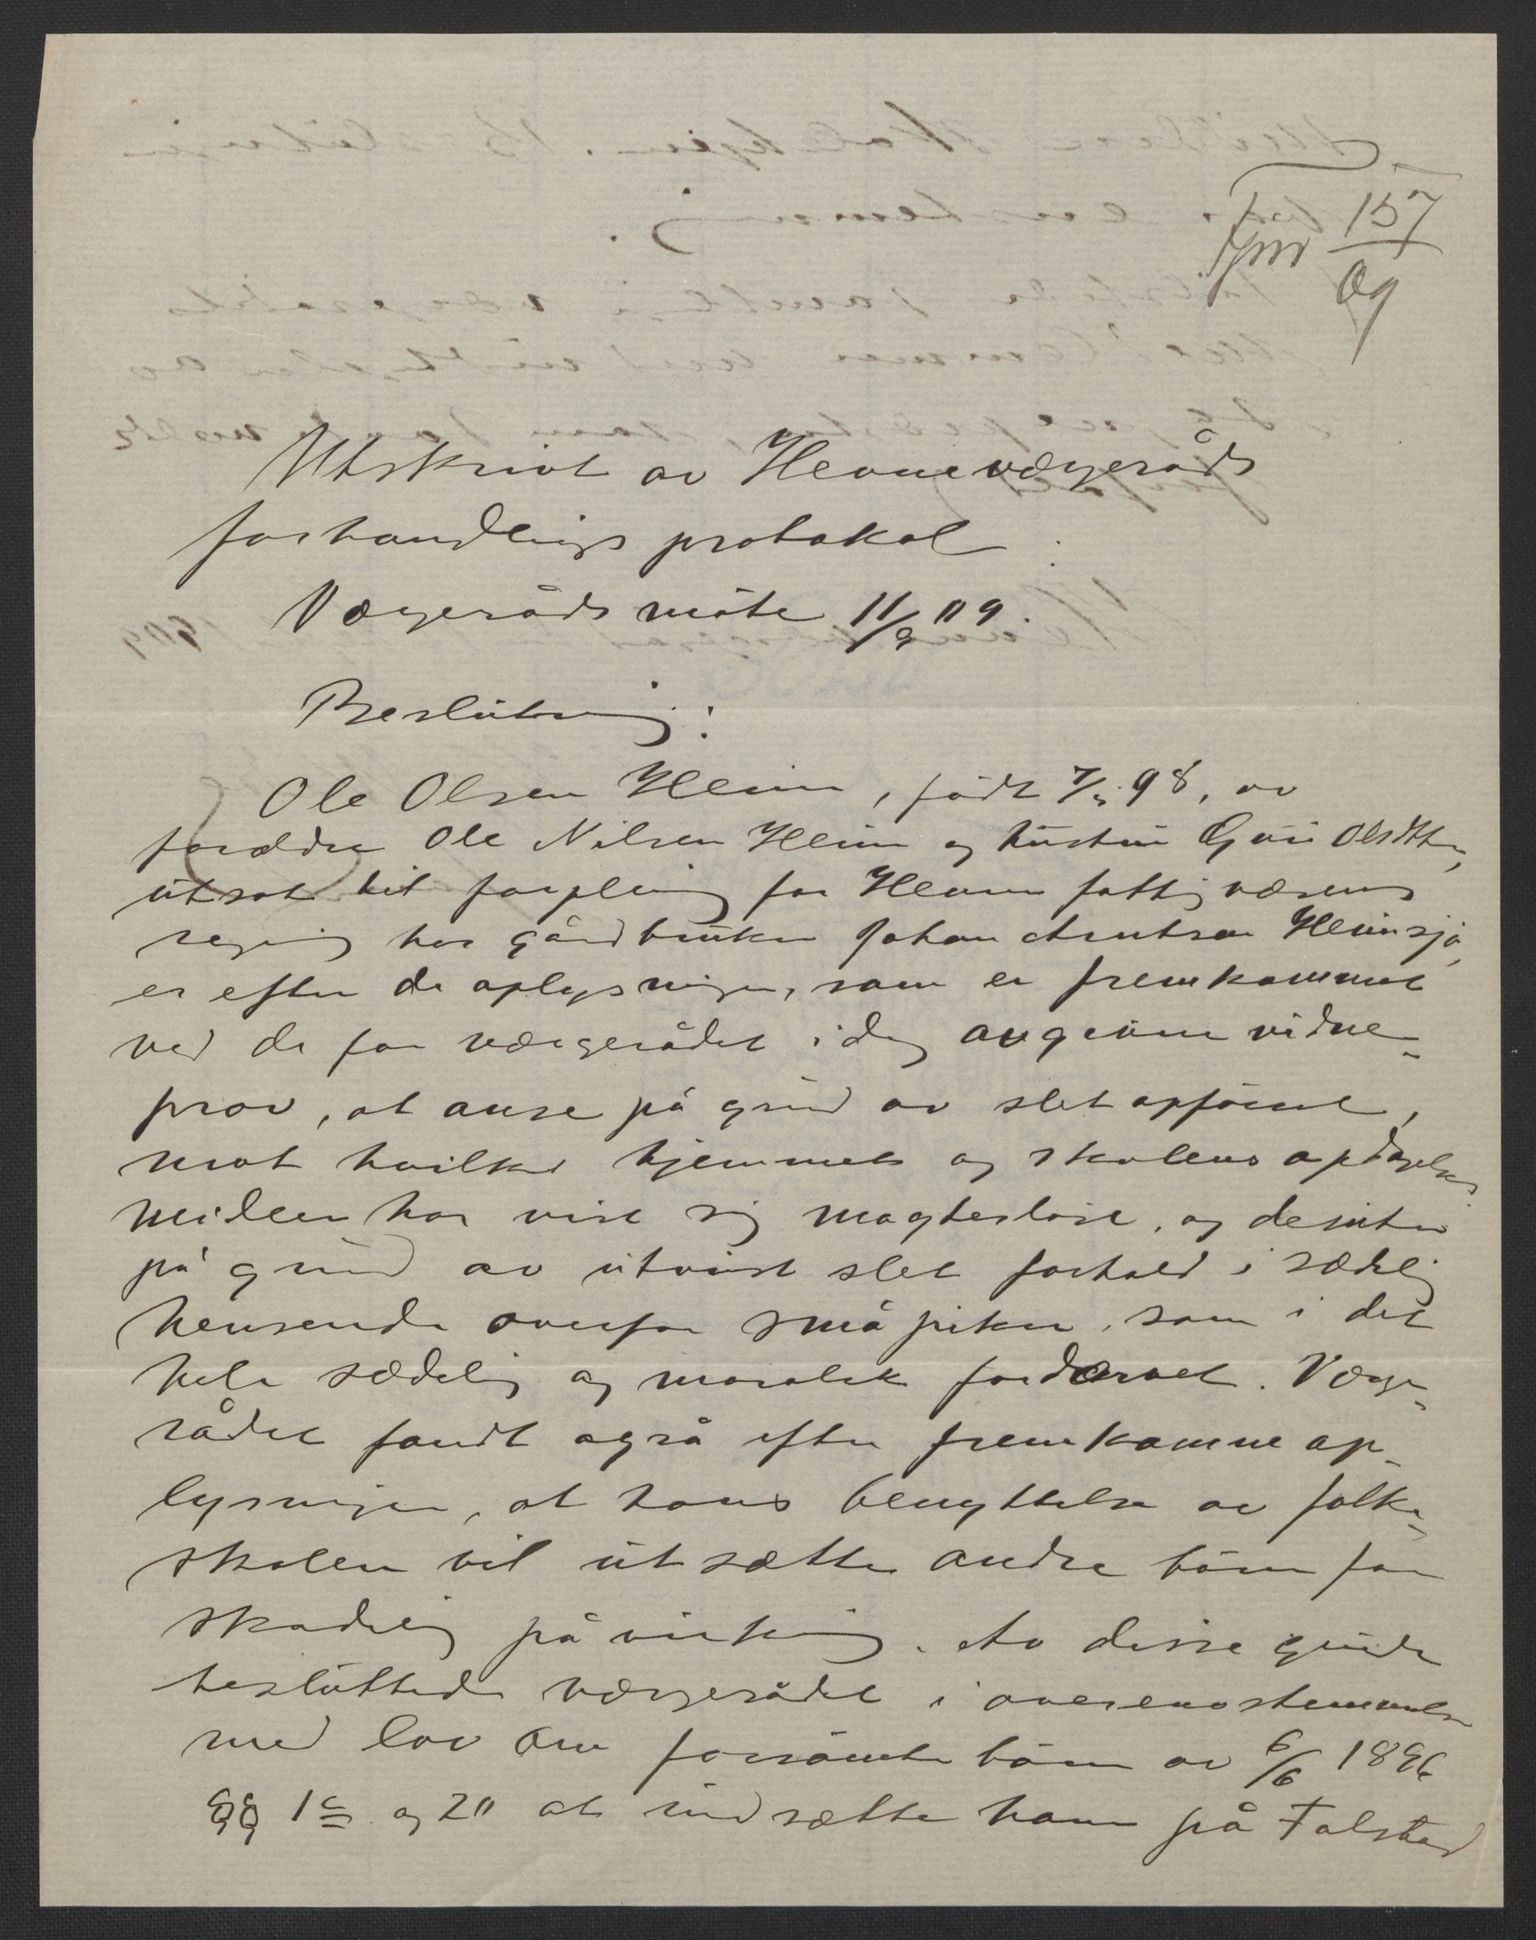 Jnr 157
09
Utskrivt av Hevne værgeråds
forhandlings protokol.
Værgeråds möte 11/9 09.
Beslutning:
Ole Olsen Heim, födt 7/5 98, av
forældre Ole Nilsen Heim og hustru Guri Olsdtter,
utsat til forpleining for Hevne fattigvæsens
regning hos gårdbruker Johan Arntsen Heimsjö,
er efter de oplysninger, som er fremkommet
ved de for værgerådet idag avgivne vidne-
prov, at anse på grund av slet opförsel,
mot hvilken hjemmets og skolens opdragelses
midler har vist sig magteslöse, og desuten
på grund av utvist slet forhold i sædelig
henseende overfor små piker, som i det
hele sædelig og moralsk fordærvet. Værge-
rådet fandt også efter fremkomne op-
lysninger, at hans benyttelse av folke-
skolen vil utsætte andre börn for
skadelig påvirkning. Av disse grunde
besluttede værgerådet i overensstemmelse
med lov om forsömte börn av 6/6 1896
§§ 1c og 20 at indsætte ham på Falstad